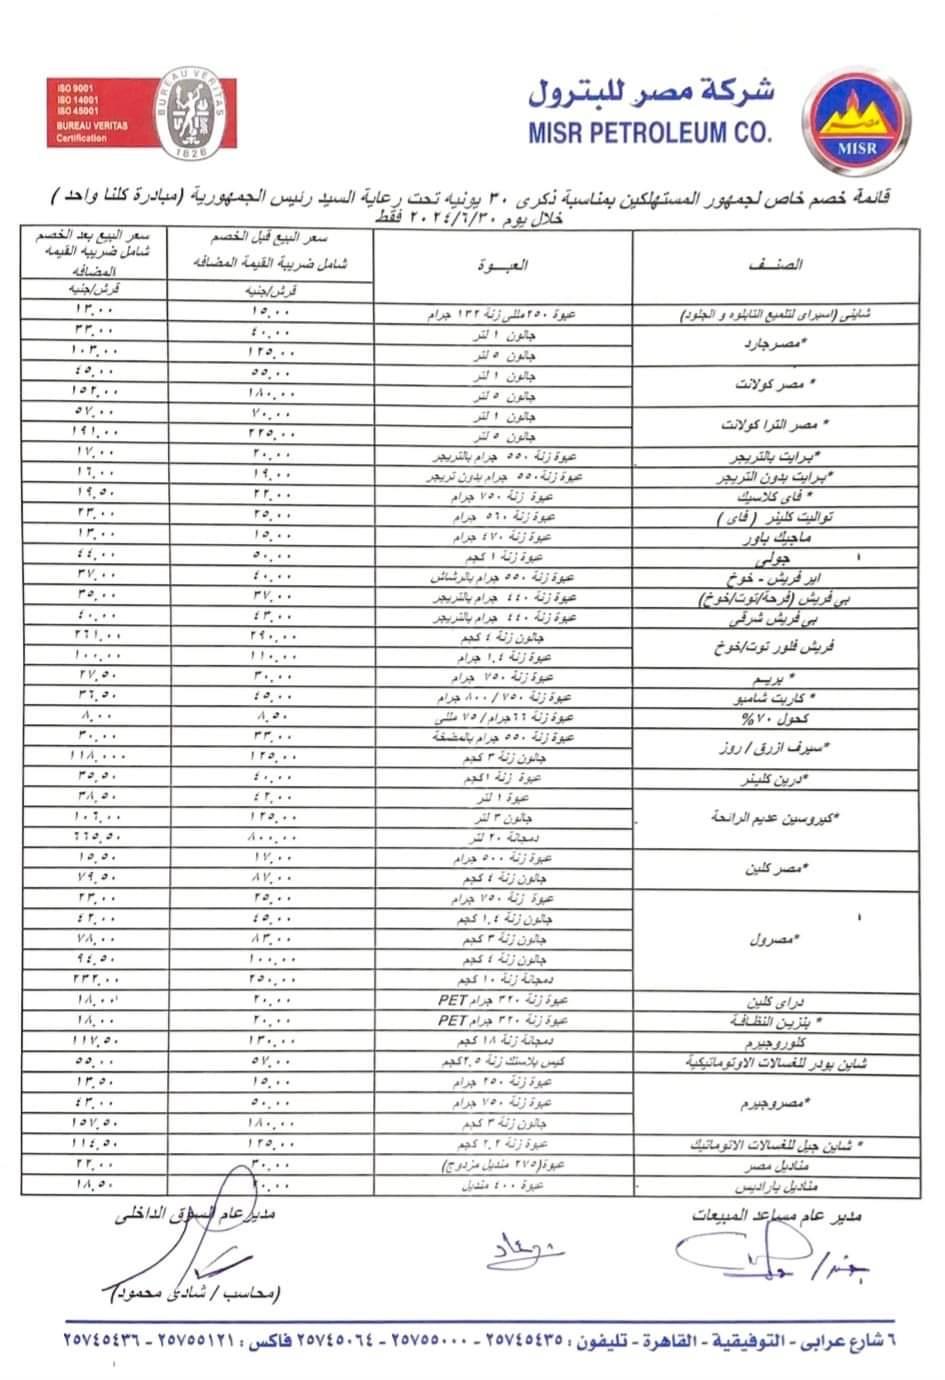 ISO 9001
ISO 14001
ISO 45001
BUREAU VERITAS
Certification
BUREAU VERITAS
1828
شركة مصر للبترول
MISR PETROLEUM CO.
مصر
MISR
قائمة خصم خاص لجمهور المستهلكين بمناسبة ذكرى ٣٠ يونيه تحت رعاية السيد رئيس الجمهورية (مبادرة كلنا واحد )
خلال يوم ٢٠٢٤/٦/٣٠ فقط
الصنف العبوة سعر البيع قبل الخصم شامل ضريبة القيمة المضافه سعر البيع بعد الخصم شامل ضريبة القيمه المضافه
قرش/جنيه قرش/جنيه
شاينى (اسبراى لتلميع التابلوه و الجلود) عبوة ٢٥٠مللى زنة ١٣٢ جرام ١٥,٠٠ ١٣,٠٠
*مصرجارد جالون ١ لتر ٤٠,٠٠ ٣٣,٠٠
جالون ٥ لتر ١٢٥,٠٠ ١٠٣,٠٠
* مصر كولانت جالون ١ لتر ٥٥,٠٠ ٤٥,٠٠
جالون ٥ لتر ١٨٠,٠٠ ١٥٢,٠٠
* مصر الترا كولانت جالون ١ لتر ٧٠,٠٠ ٥٧,٠٠
جالون ٥ لتر ٢٢٥,٠٠ ١٩١,٠٠
*برايت بالتريجر عبوة زنة ٥٥٠ جرام بالتريجر ٢٠,٠٠ ١٧,٠٠
*برايت بدون التريجر عبوة زنة ٥٥٠ جرام بدون تريجر ١٩,٠٠ ١٦,٠٠
* فاى كلاسيك عبوة زنة ٧٥٠ جرام ٢٢,٠٠ ١٩,٥٠
تواليت كلينر ( فاى ) عبوة زنة ٥٦٠ جرام ٢٥,٠٠ ٢٣,٠٠
ماجيك باور عبوة زنة ٤٧٠ جرام ١٥,٠٠ ١٣,٠٠
جولى عبوة زنة ١ كجم ٥٠,٠٠ ٤٤,٠٠
اير فريش - خوخ عبوة زنة ٥٥٠ جرام بالرشاش ٤٠,٠٠ ٣٧,٠٠
بى فريش (فرحة/توت/خوخ) عبوة زنة ٤٤٠ جرام بالتريجر ٣٧,٠٠ ٣٥,٠٠
بى فريش شرقى عبوة زنة ٤٤٠ جرام بالتريجر ٤٣,٠٠ ٤٠,٠٠
فريش فلور توت/خوخ جالون زنة ٤ كجم ٢٩٠,٠٠ ٢٦١,٠٠
عبوة زنة ١,٤ جرام ١١٠,٠٠ ١٠٠,٠٠
* بريم عبوة زنة ٧٥٠ جرام ٣٠,٠٠ ٢٧,٥٠
* كاريت شامبو عبوة زنة ٧٥٠ / ٨٠٠ جرام ٤٥,٠٠ ٣٦,٥٠
كحول ٧٠% عبوة زنة ٦٦جرام / ٧٥ مللى ٨,٥٠ ٨,٠٠
*سيرف ازرق / روز عبوة زنة ٥٥٠ جرام بالمضخة ٣٣,٠٠ ٣٠,٠٠
جالون زنة ٣ كجم ١٢٥,٠٠ ١١٨,٠٠٠
*درين كلينر عبوة زنة ١كجم ٤٠,٠٠ ٣٥,٥٠
*كيروسين عديم الرائحة عبوة ١ لتر ٤٢,٠٠ ٣٨,٥٠
جالون ٣ لتر ١٢٥,٠٠ ١٠٦,٠٠
دمجانة ٢٠ لتر ٨٠٠,٠٠ ٦٦٥,٥٠
*مصر كلين عبوة زنة ٥٠٠ جرام ١٧,٠٠ ١٥,٥٠
جالون زنة ٤ كجم ٨٧,٠٠ ٧٩,٥٠
*مصرول عبوة زنة ٧٥٠ جرام ٢٥,٠٠ ٢٣,٠٠
جالون زنة ١,٤ كجم ٤٥,٠٠ ٤٢,٠٠
جالون زنة ٣ كجم ٨٣,٠٠ ٧٨,٠٠
جالون زنة ٤ كجم ١٠٠,٠٠ ٩٤,٥٠
دمجانة زنة ١٠ كجم ٢٥٠,٠٠ ٢٣٢,٠٠
دراى كلين عبوة زنة ٣٢٠ جرام PET ٢٠,٠٠ ١٨,٠٠
* بنزين النظافة عبوة زنة ٣٢٠ جرام PET ٢٠,٠٠ ١٨,٠٠
كلوروجيرم دمجانة زنة ١٨ كجم ١٣٠,٠٠ ١١٧,٥٠
شاين بودر للغسالات الاوتوماتيكية كيس بلاستك زنة ٢,٥كجم ٥٧,٠٠ ٥٥,٠٠
*مصروجيرم عبوة زنة ٢٥٠ جرام ١٥,٠٠ ١٣,٥٠
عبوة زنة ٧٥٠ جرام ٥٠,٠٠ ٤٣,٠٠
جالون زنة ٣ كجم ١٨٠,٠٠ ١٥٧,٥٠
* شاين جيل للغسالات الاتوماتيك عبوة زنة ٢,٢ كجم ١٢٥,٠٠ ١١٤,٥٠
مناديل مصر عبوة(٢٧٥ منديل مزدوج) ٣٠,٠٠ ٢٢,٠٠
مناديل باراديس عبوة ٤٠٠ منديل ١٨,٥٠
مدير عام مساعد المبيعات مدير عام السوق الداخلى
(محاسب / شادى محمود)
٦ شارع عرابى - التوفيقية - القاهرة - تليفون : ٢٥٧٤٥٤٣٥ - ٢٥٧٥٥٠٠٠ - ٢٥٧٤٥٠٦٤ فاكس : ٢٥٧٥٥١٢١ - ٢٥٧٤٥٤٣٦